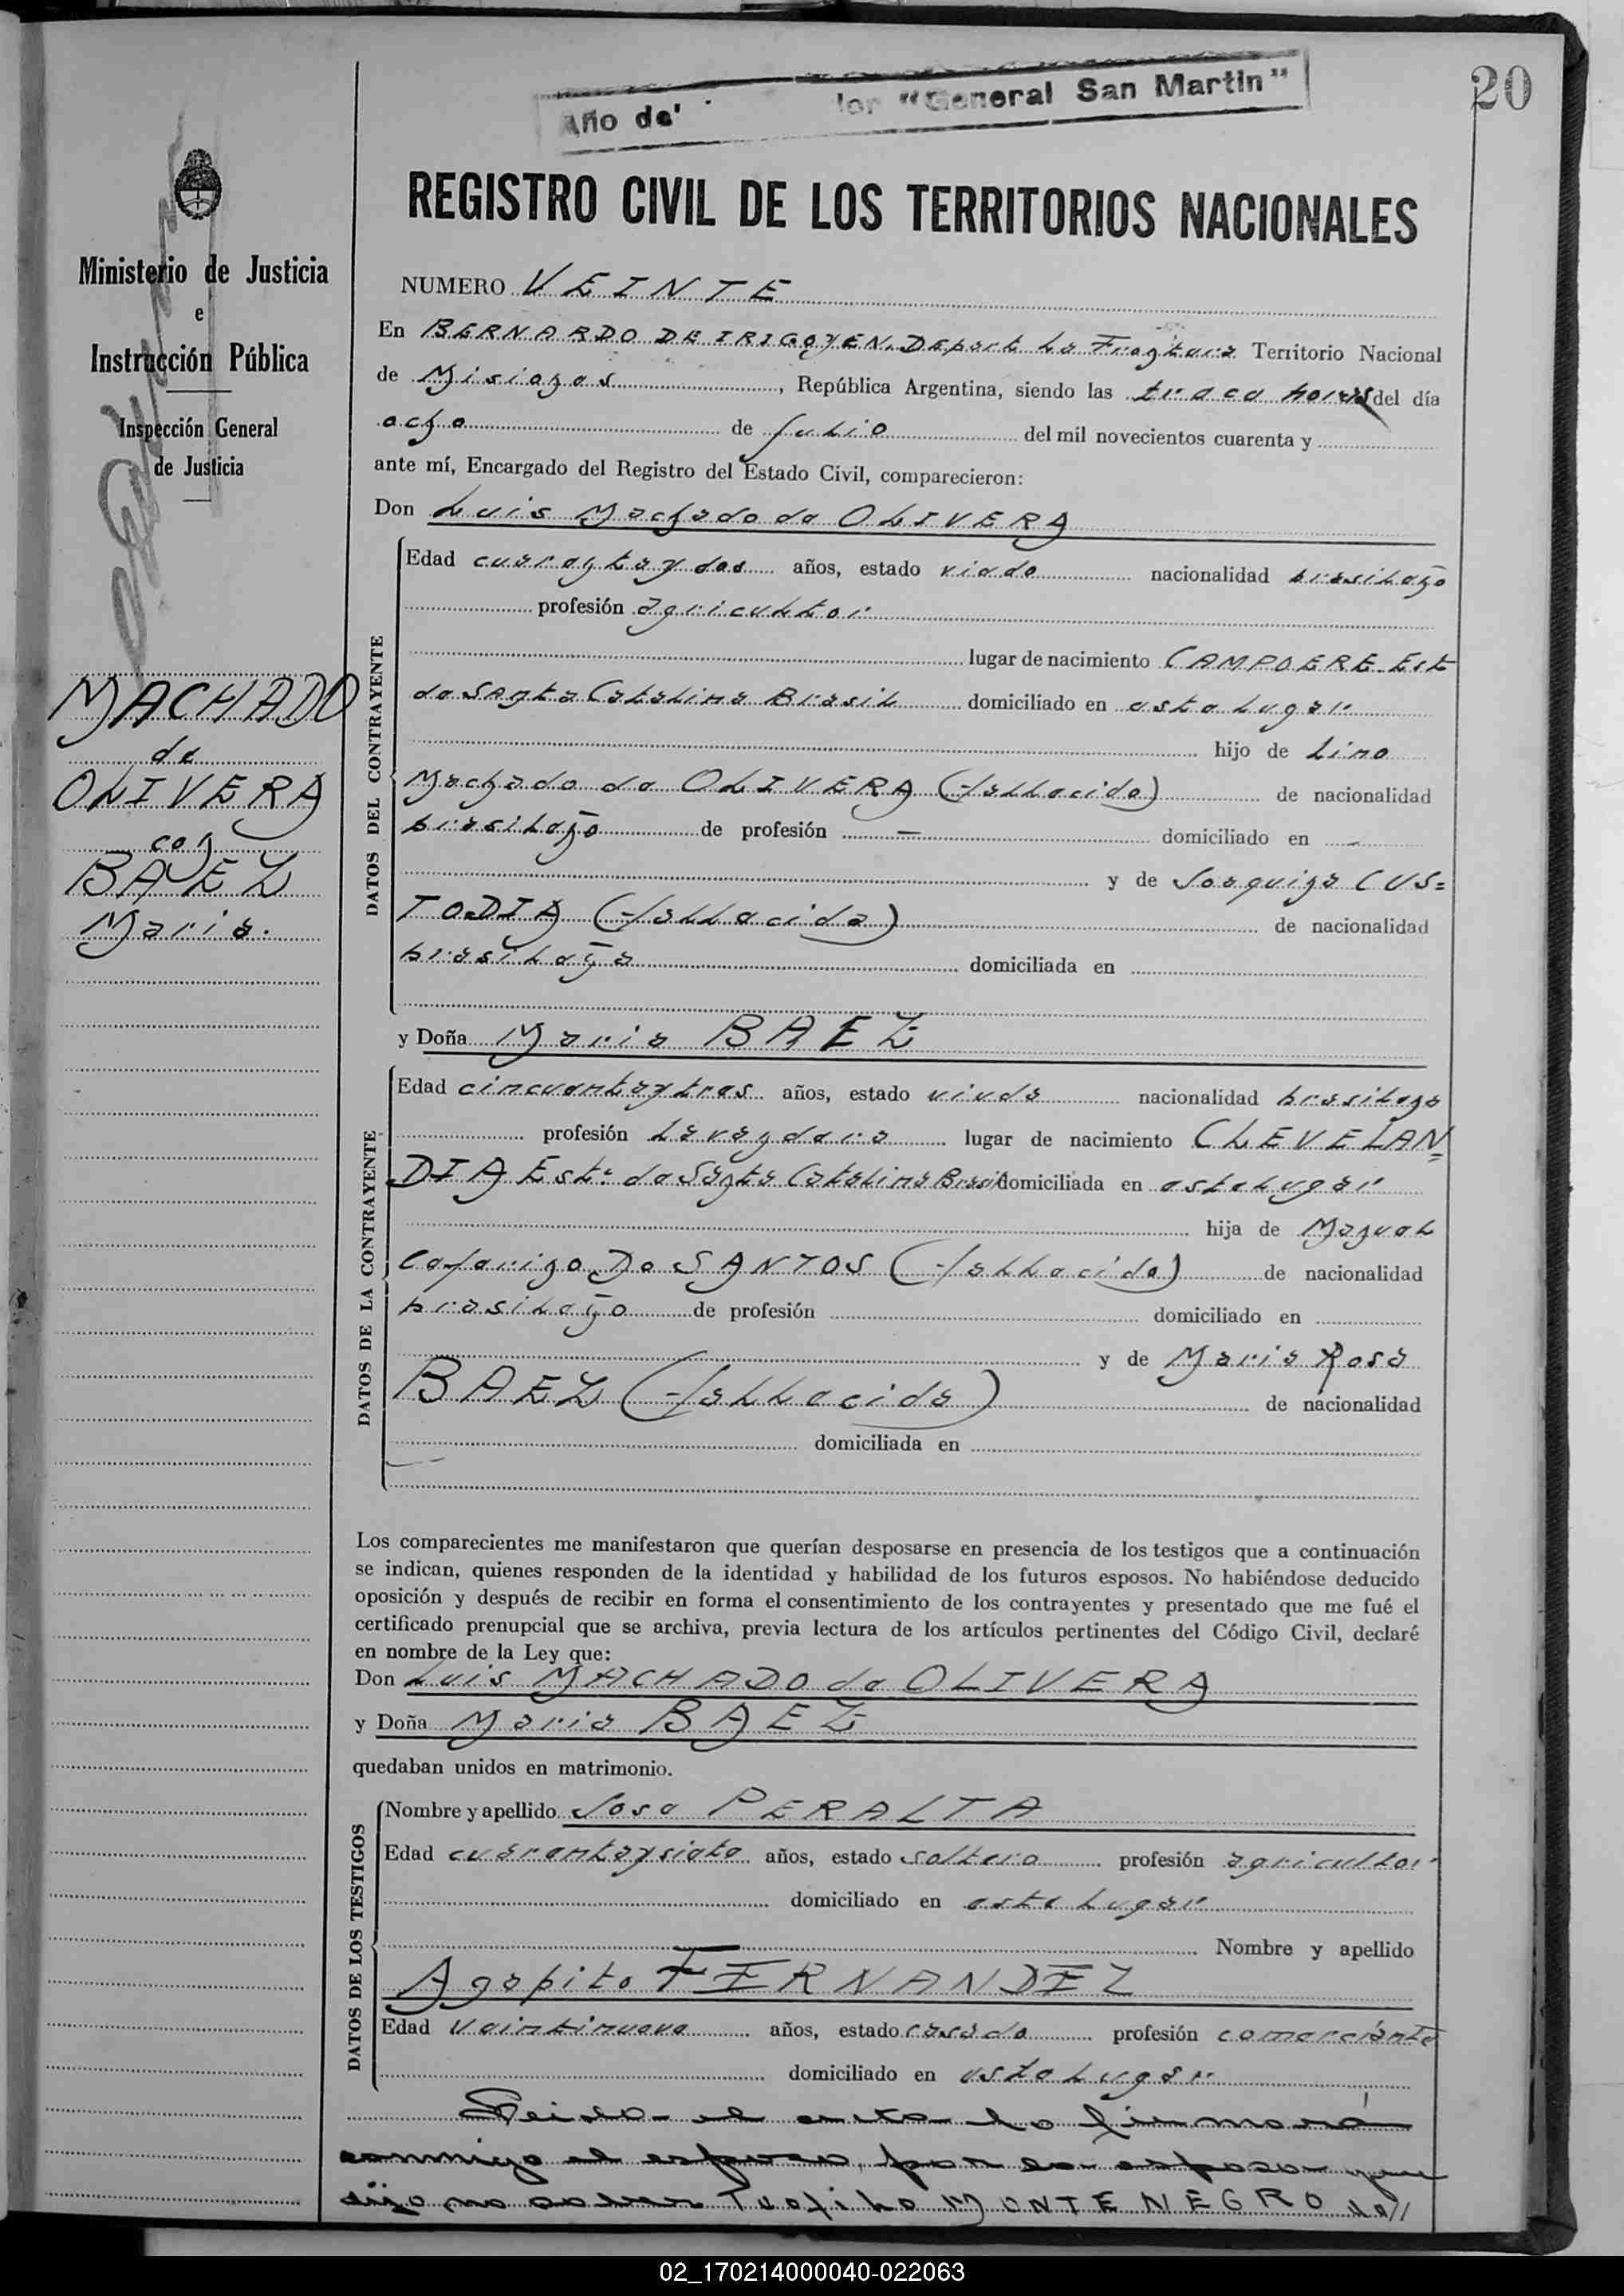 Año de lor "General San Martin"
20
REGISTRO CIVIL DE LOS TERRITORIOS NACIONALES
Ministerio de Justicia
e
Instrucción Pública
Inspección General
de Justicia
MACHADO
de
OLIVERA
con
BAEZ
Maria.
NUMERO VEINTE
En BERNARDO DE IRIGOYEN. Depart. La Frontera Territorio Nacional
de Misiones, República Argentina, siendo las trece horas del día
ocho de Julio del mil novecientos cuarenta y
ante mí, Encargado del Registro del Estado Civil, comparecieron:
Don Luis Machado de OLIVERA
DATOS DEL CONTRAYENTE
Edad cuarentaydos años, estado viudo nacionalidad brasileño
profesión agricultor
lugar de nacimiento CAMPOERE Est
de Santa Catalina Brasil domiciliado en este lugar
hijo de Lino
Machado de OLIVERA (fallecido) de nacionalidad
brasileño de profesión — domiciliado en
y de Joaquina CUS=
TODIA (fallecida) de nacionalidad
brasileña domiciliada en
y Doña Maria BAEZ
DATOS DE LA CONTRAYENTE
Edad cincuentaytres años, estado viuda nacionalidad brasileña
profesión Lavandera lugar de nacimiento CLEVELAN=
DIA Est. de Santa Catalina Brasil domiciliada en este lugar
hija de Manuel
Ceferino Do SANTOS (fallecido) de nacionalidad
brasileño de profesión domiciliado en
y de Maria Rosa
BAEZ (fallecida) de nacionalidad
domiciliada en
Los comparecientes me manifestaron que querían desposarse en presencia de los testigos que a continuación
se indican, quienes responden de la identidad y habilidad de los futuros esposos. No habiéndose deducido
oposición y después de recibir en forma el consentimiento de los contrayentes y presentado que me fué el
certificado prenupcial que se archiva, previa lectura de los artículos pertinentes del Código Civil, declaré
en nombre de la Ley que:
Don Luis MACHADO de OLIVERA
y Doña Maria BAEZ
quedaban unidos en matrimonio.
DATOS DE LOS TESTIGOS
Nombre y apellido Jose PERALTA
Edad cuarentaysiete años, estado soltero profesión agricultor
domiciliado en este lugar
Nombre y apellido
Agapito FERNANDEZ
Edad veintinueve años, estado casado profesión comerciante
domiciliado en este lugar
Leida el acta la firmará
conmigo el esposo, por la esposa que
dijo no saber Teofilo MONTENEGRO de//
02_170214000040-022063